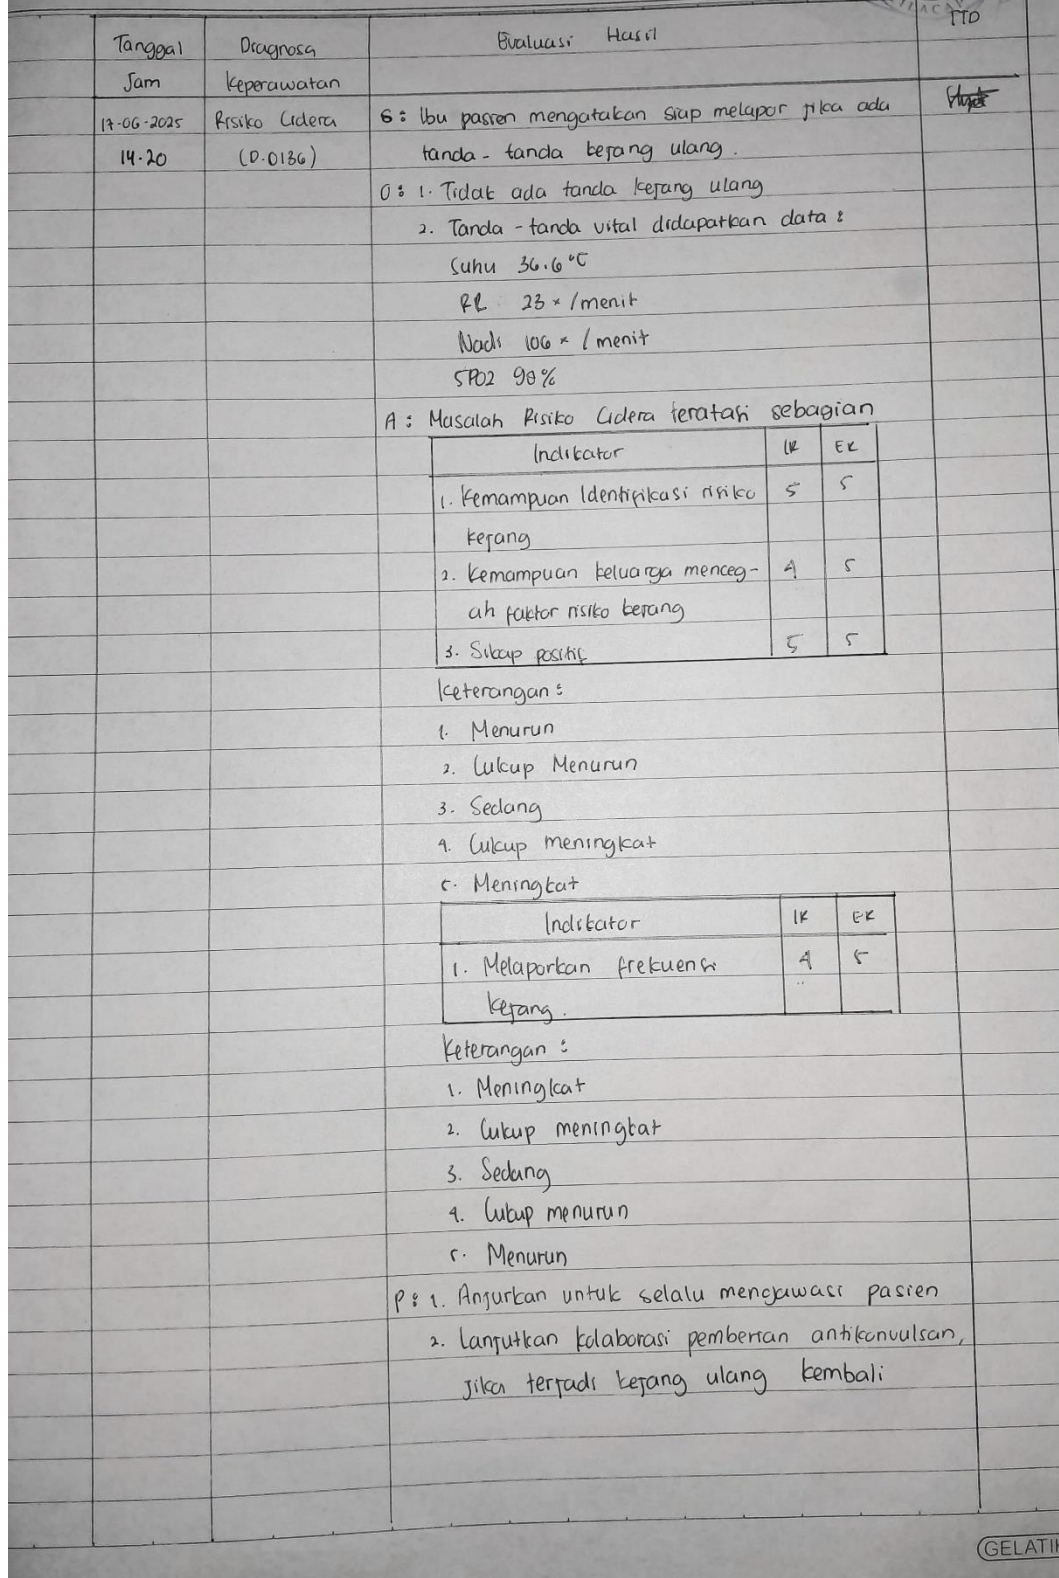 TTD
Tanggal Diagnosa Evaluasi Hasil
Jam Keperawatan
17-06-2025 Risiko Cidera S : Ibu pasien mengatakan siap melapor jika ada
14.20 (D.0136) tanda - tanda kejang ulang.
O : 1. Tidak ada tanda kejang ulang
2. Tanda - tanda vital didapatkan data :
Suhu 36.6 °C
RR 23 x /menit
Nadi 106 x / menit
SPO2 98 %
A : Masalah Risiko Cidera teratasi sebagian
Indikator IR ER
1. Kemampuan Identifikasi risiko 5 5
kejang
2. Kemampuan keluarga menceg- 4 5
ah faktor risiko kejang
3. Sikap positif 5 5
Keterangan :
1. Menurun
2. Cukup Menurun
3. Sedang
4. Cukup meningkat
5. Meningkat
Indikator IR ER
1. Melaporkan frekuensi 4 5
kejang.
Keterangan :
1. Meningkat
2. Cukup meningkat
3. Sedang
4. Cukup menurun
5. Menurun
P : 1. Anjurkan untuk selalu mengawasi pasien
2. Lanjutkan kolaborasi pemberian antikonvulsan,
jika terjadi kejang ulang kembali